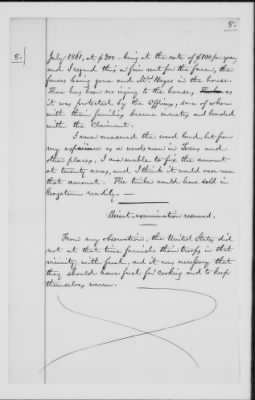 8.
8.
July 1861, at $300 - being at the rate of $100 per year,
and I regard this a fair rent for the farm, the
fences being gone and Mrs Hayes in the house.
There has been no injury to the house, as
it was protected by the Officers, some of whom
with their families became messty and boarded
with the Claimant.
I never measured the wood land, but from
my experience as a woodsman in Texas and
other places, I am able to fix the amount
at twenty acres, and I think it would over run
that amount. The timber would have sold in
Georgetown readily. —
Direct-examination resumed.
From my observation, the United States did
not at that time furnish their troops in that
vicinity with fuel, and it was necessary that
they should have fuel for cooking and to keep
themselves warm.